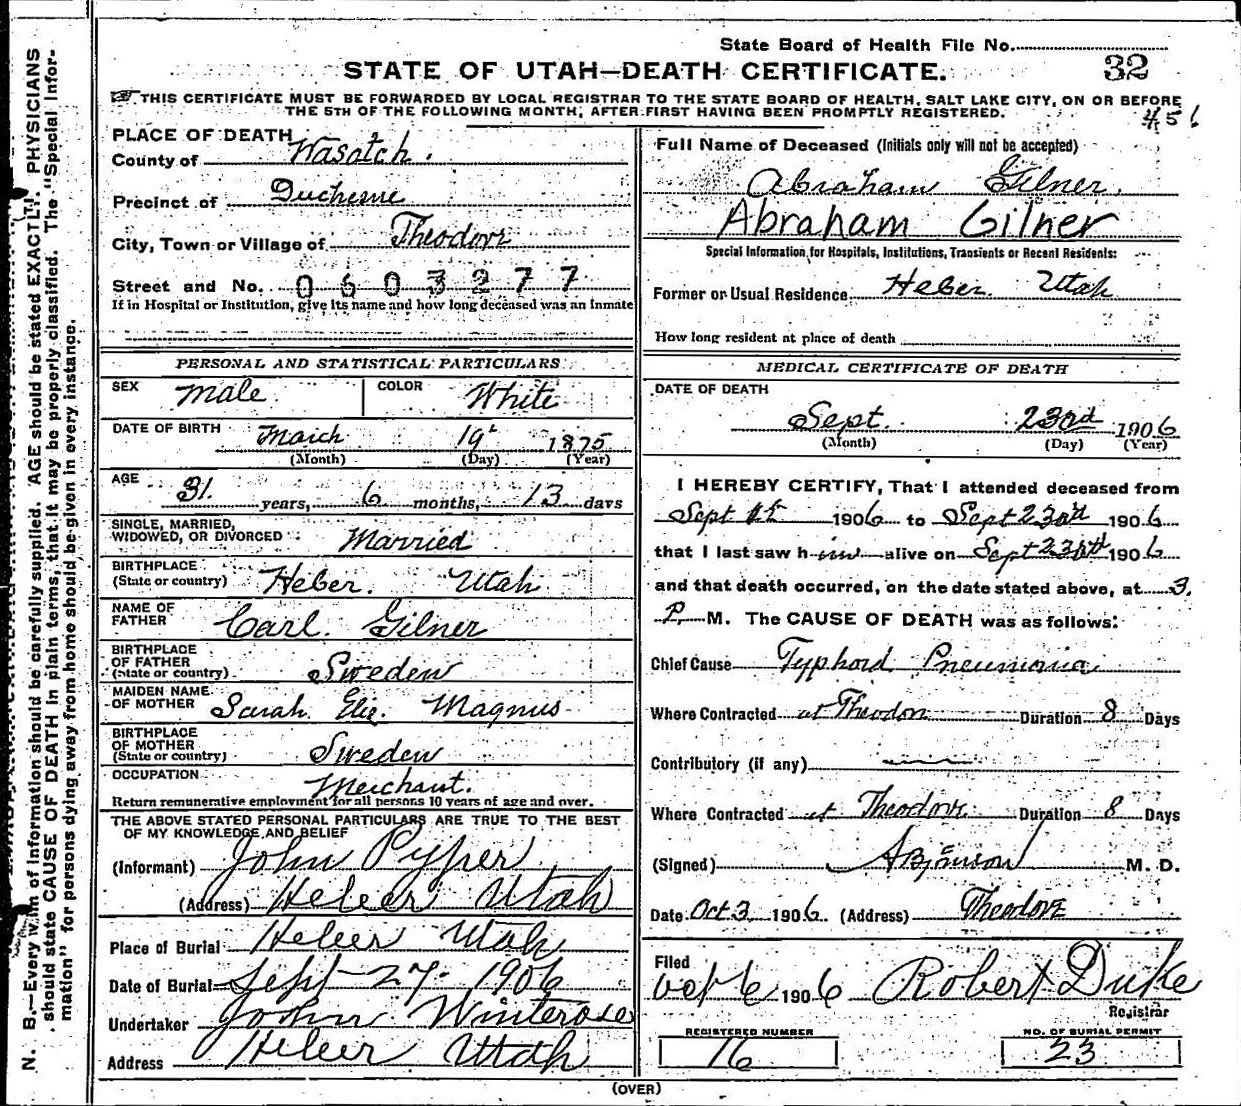 State Board of Health File No.
STATE OF UTAH—DEATH CERTIFICATE. 32
THIS CERTIFICATE MUST BE FORWARDED BY LOCAL REGISTRAR TO THE STATE BOARD OF HEALTH, SALT LAKE CITY, ON OR BEFORE
THE 5TH OF THE FOLLOWING MONTH, AFTER FIRST HAVING BEEN PROMPTLY REGISTERED.
PLACE OF DEATH
County of Wasatch.
Precinct of Duchesne
City, Town or Village of Theodore
Street and No. 0603277
If in Hospital or Institution, give its name and how long deceased was an inmate
PERSONAL AND STATISTICAL PARTICULARS
SEX Male COLOR White
DATE OF BIRTH March 19 1875
(Month) (Day) (Year)
AGE 31 years, 6 months, 13 days
SINGLE, MARRIED,
WIDOWED, OR DIVORCED Married
BIRTHPLACE
(State or country) Heber. Utah
NAME OF
FATHER Carl. Gilner
BIRTHPLACE
OF FATHER
(State or country) Sweden
MAIDEN NAME
OF MOTHER Sarah Eliz. Magnus
BIRTHPLACE
OF MOTHER
(State or country) Sweden
OCCUPATION Merchant.
Return remunerative employment for all persons 10 years of age and over.
THE ABOVE STATED PERSONAL PARTICULARS ARE TRUE TO THE BEST
OF MY KNOWLEDGE AND BELIEF
(Informant) John Pyper
(Address) Heber Utah
Place of Burial Heber Utah
Date of Burial Sept 27 1906
Undertaker John Winterose
Address Heber Utah
Full Name of Deceased (Initials only will not be accepted)
Abraham Gilner.
Abraham Gilner
Special Information for Hospitals, Institutions, Transients or Recent Residents:
Former or Usual Residence Heber Utah
How long resident at place of death
MEDICAL CERTIFICATE OF DEATH
DATE OF DEATH
Sept. 23rd 1906
(Month) (Day) (Year)
I HEREBY CERTIFY, That I attended deceased from
Sept 1906 to Sept 23rd 1906
that I last saw him alive on Sept 23rd 1906
and that death occurred, on the date stated above, at 3.
P. M. The CAUSE OF DEATH was as follows:
Chief Cause Typhoid Pneumonia
Where Contracted at Theodore Duration 8 Days
Contributory (if any)
Where Contracted at Theodore Duration 8 Days
(Signed) M. D.
Date Oct 3 1906 (Address) Theodore
Filed
Oct 6 1906 Robert Duke
Registrar
REGISTERED NUMBER
16
NO. OF BURIAL PERMIT
23
(OVER)
N. B.—Every item of information should be carefully supplied. AGE should be stated EXACTLY. PHYSICIANS
should state CAUSE OF DEATH in plain terms, that it may be properly classified. The "Special Infor-
mation" for persons dying away from home should be given in every instance.